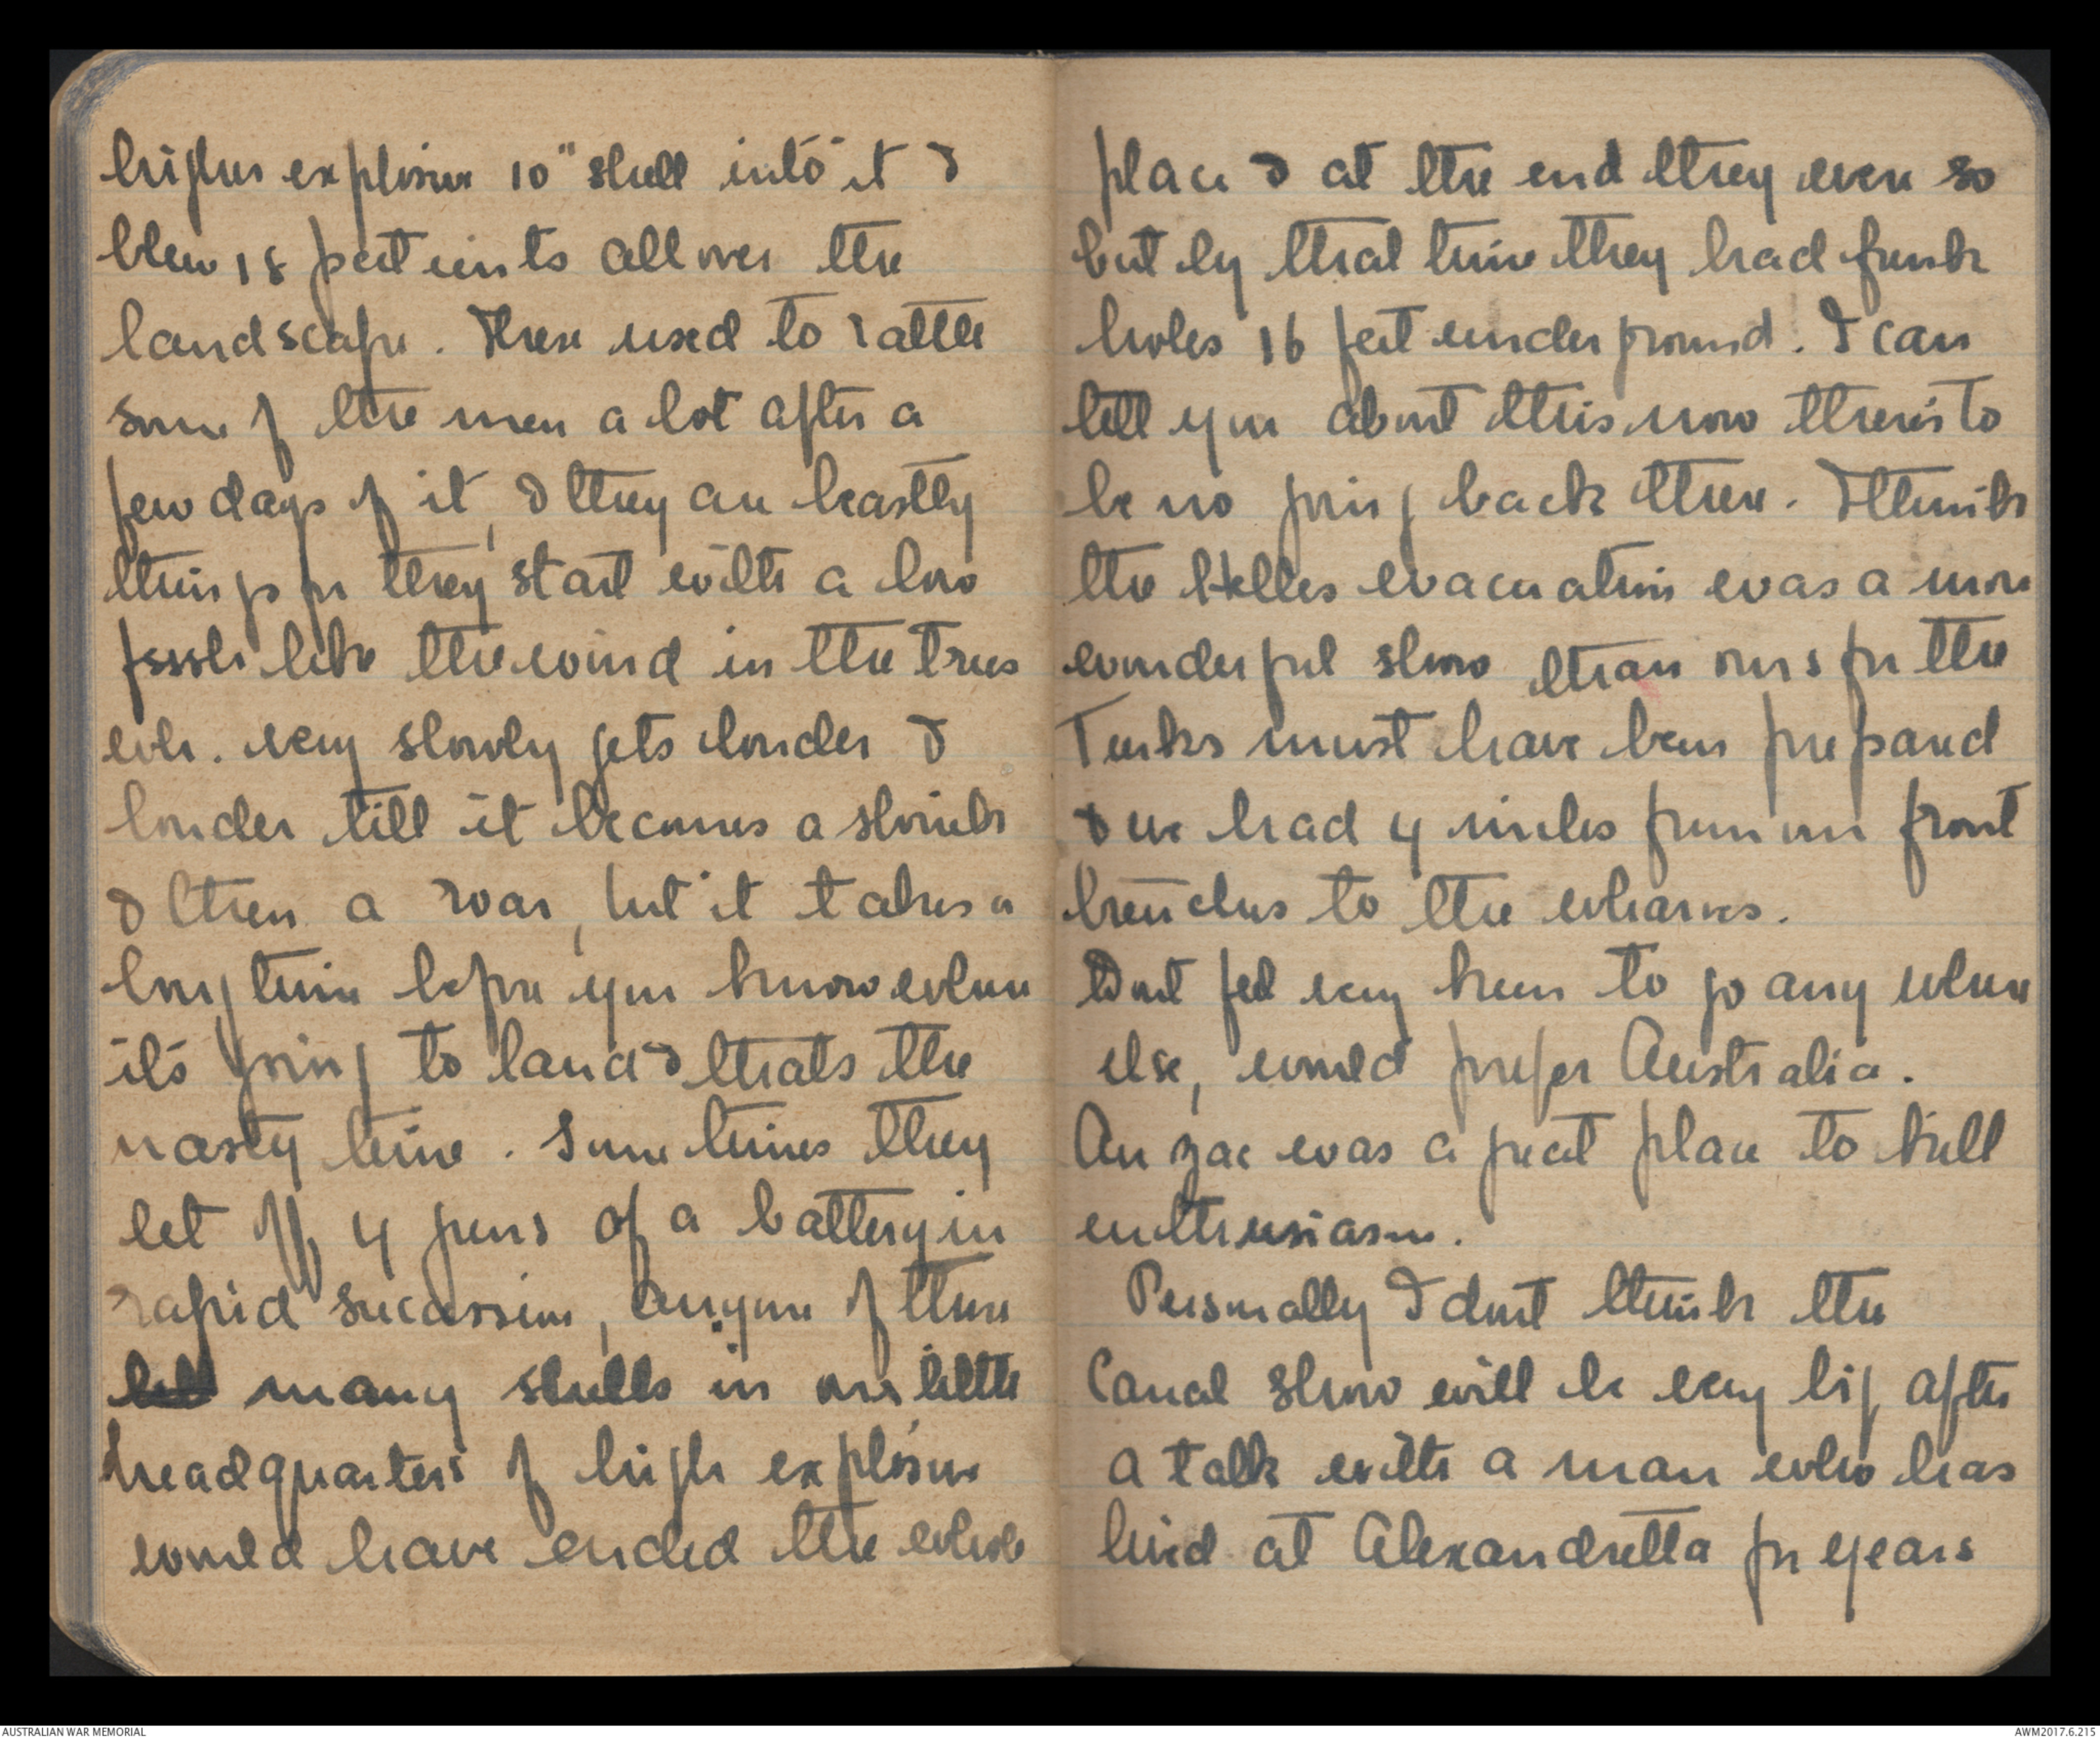 higher explosive 10" shell into it &
blew 18 patients all over the
landscape. These used to rattle
some of the men a lot after a
few days of it, & they are beastly
things for they start with a low
fsssh like the wind in the trees
etc. very slowly gets louder &
louder till it becomes a shriek
& then a roar, but it takes a
long time before you know where
it's going to land & thats the
nasty time. Sometimes they
let off 4 guns of a battery in
rapid succession, anyone of them
many shells in our little
headquarters of high explosive
would have ended the whole
place & at the end they even so
but by that time they had funk
holes 16 feet underground. I can
tell you about this now there's to
be no going back there. I think
the Helles evacuation was a more
wonderful show than ours for the
Turks must have been prepared
& we had 4 miles from our front
trenches to the wharves.
Dont feel very keen to go any where
else, would prefer Australia.
Anzac was a great place to kill
enthusiasm.
Personally I dont think the
Canal show will be very big after
a talk with a man who has
lived at Alexandretta for years
AUSTRALIAN WAR MEMORIAL
AWM2017.6.215